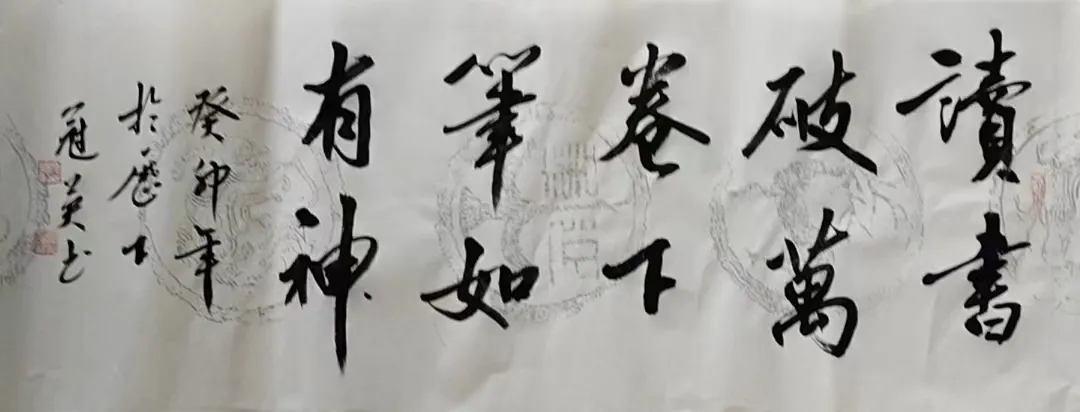 讀書
破萬
卷下
筆如
有神
癸卯年
於歷下
冠英书